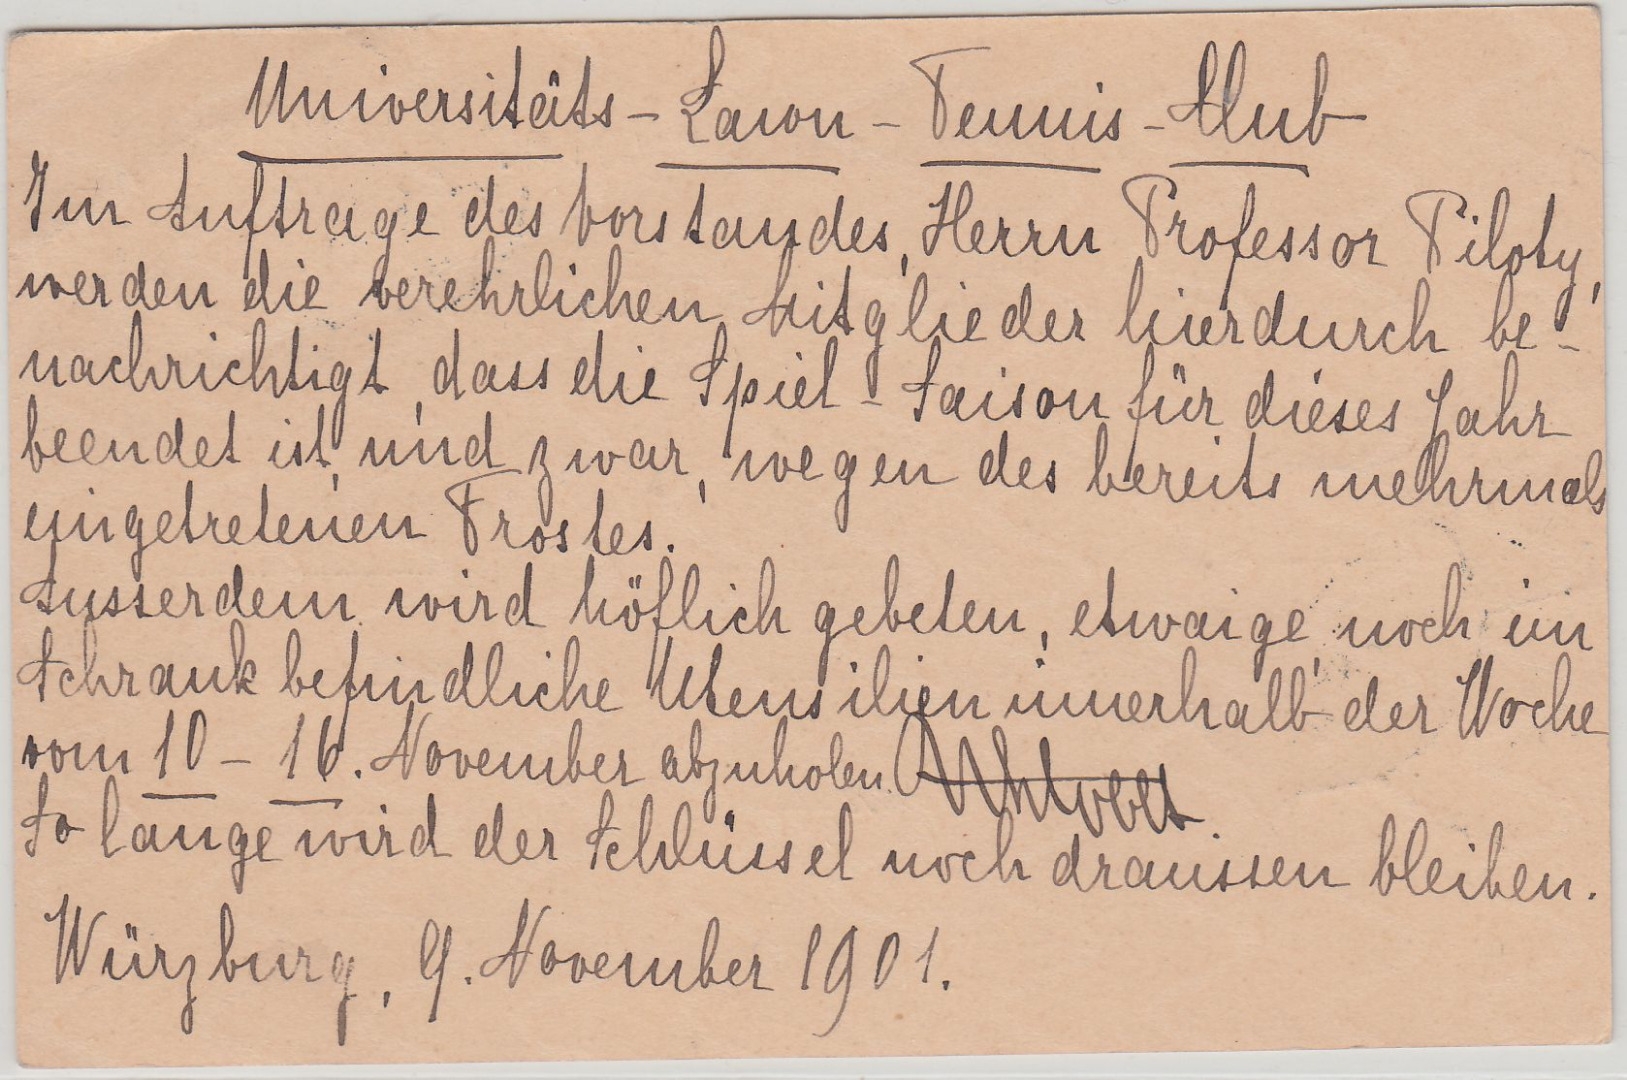 Universitäts-Lawn-Tennis-Club
Im Auftrage des Vorstandes, Herrn Professor Piloty,
werden die verehrlichen Mitglieder hierdurch be-
nachrichtigt, dass die Spiel-Saison für dieses Jahr
beendet ist, und zwar, wegen des bereits mehrmals
eingetretenen Frostes.
Ausserdem wird höflich gebeten, etwaige, noch im
Schrank befindliche Utensilien innerhalb der Woche
vom 10-16. November abzuholen.
So lange wird der Schlüssel noch draussen bleiben.
Würzburg, 9. November 1901.